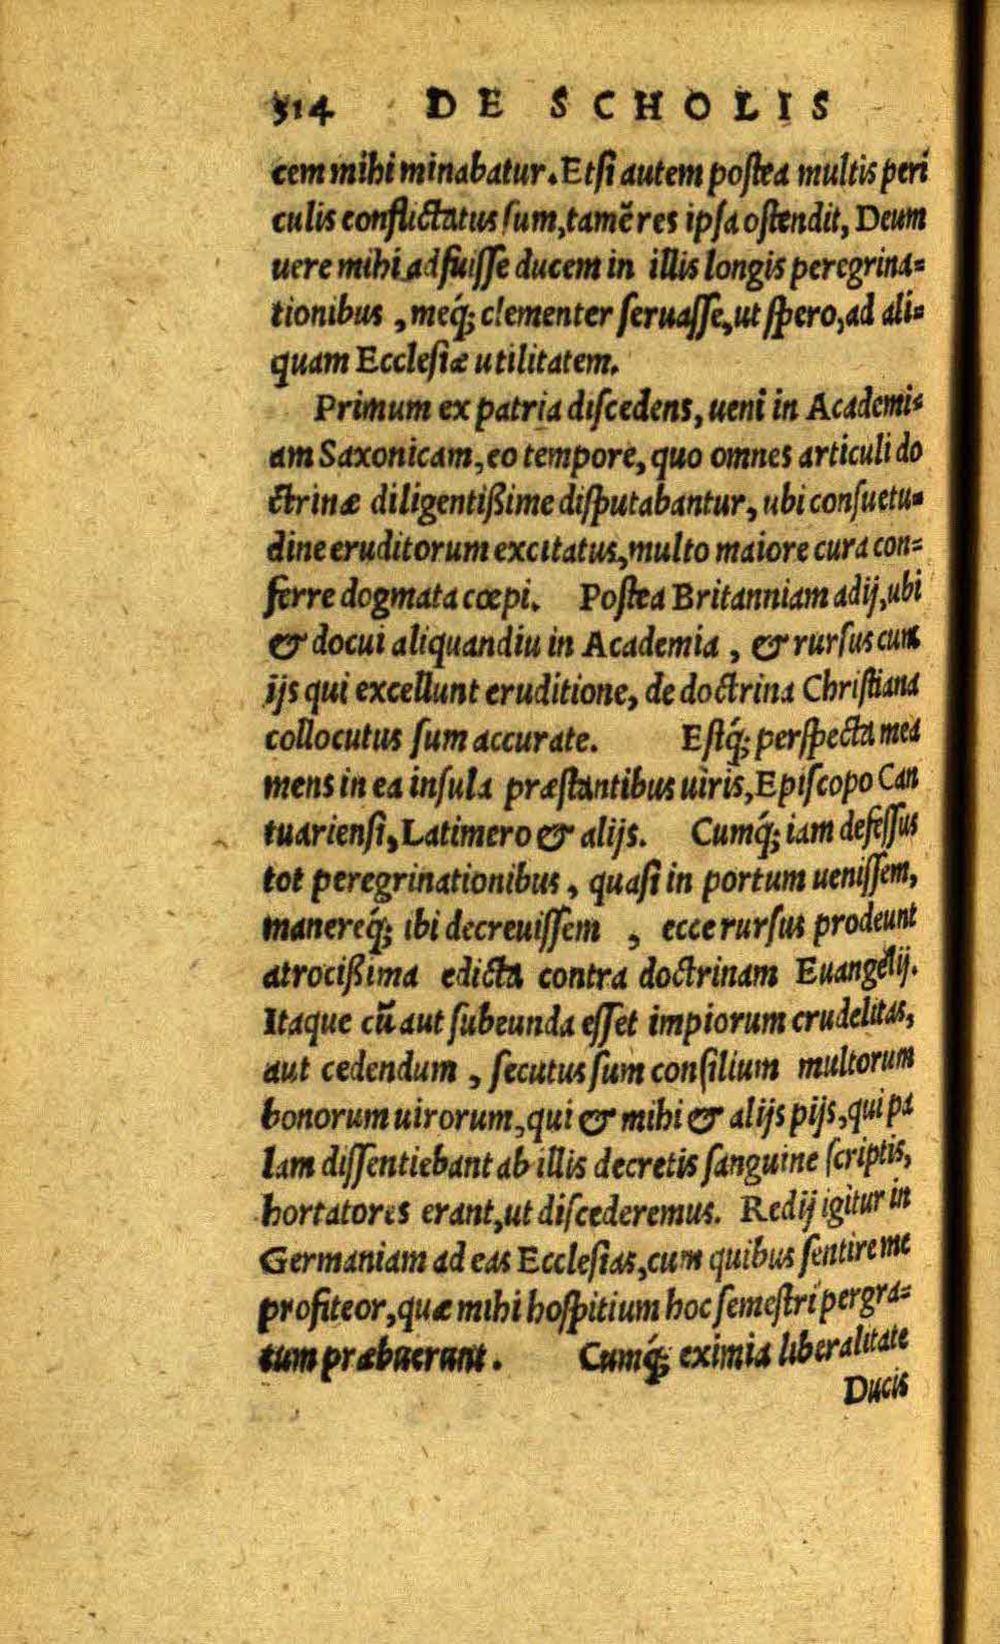 314 DE SCHOLIS
cem mihi minabatur. Etsi autem postea multis peri
culis conflictatus sum, tamē res ipsa ostendit, Deum
uere mihi adfuisse ducem in illis longis peregrina=
tionibus, meq́; clementer seruasse, ut spero, ad ali=
quam Ecclesiæ utilitatem.
Primum ex patria discedens, ueni in Academi=
am Saxonicam, eo tempore, quo omnes articuli do
ctrinæ diligentißime disputabantur, ubi consuetu=
dine eruditorum excitatus, multo maiore cura con=
ferre dogmata cœpi. Postea Britanniam adij, ubi
& docui aliquandiu in Academia, & rursus cum
ijs qui excellunt eruditione, de doctrina Christiana
collocutus sum accurate. Estq́; perspecta mea
mens in ea insula præstantibus uiris, Episcopo Can
tuariensi, Latimero & alijs. Cumq́; iam defessus
tot peregrinationibus, quasi in portum uenissem,
manereq́; ibi decreuissem, ecce rursus prodeunt
atrocißima edicta contra doctrinam Euangelij.
Itaque cū aut subeunda esset impiorum crudelitas,
aut cedendum, secutus sum consilium multorum
bonorum uirorum, qui & mihi & alijs pijs, qui pa
lam dissentiebant ab illis decretis sanguine scriptis,
hortatores erant, ut discederemus. Redij igitur in
Germaniam ad eas Ecclesias, cum quibus sentire me
profiteor, quæ mihi hospitium hoc semestri pergra=
tum præbuerunt. Cumq́; eximia liberalitate
Ducis